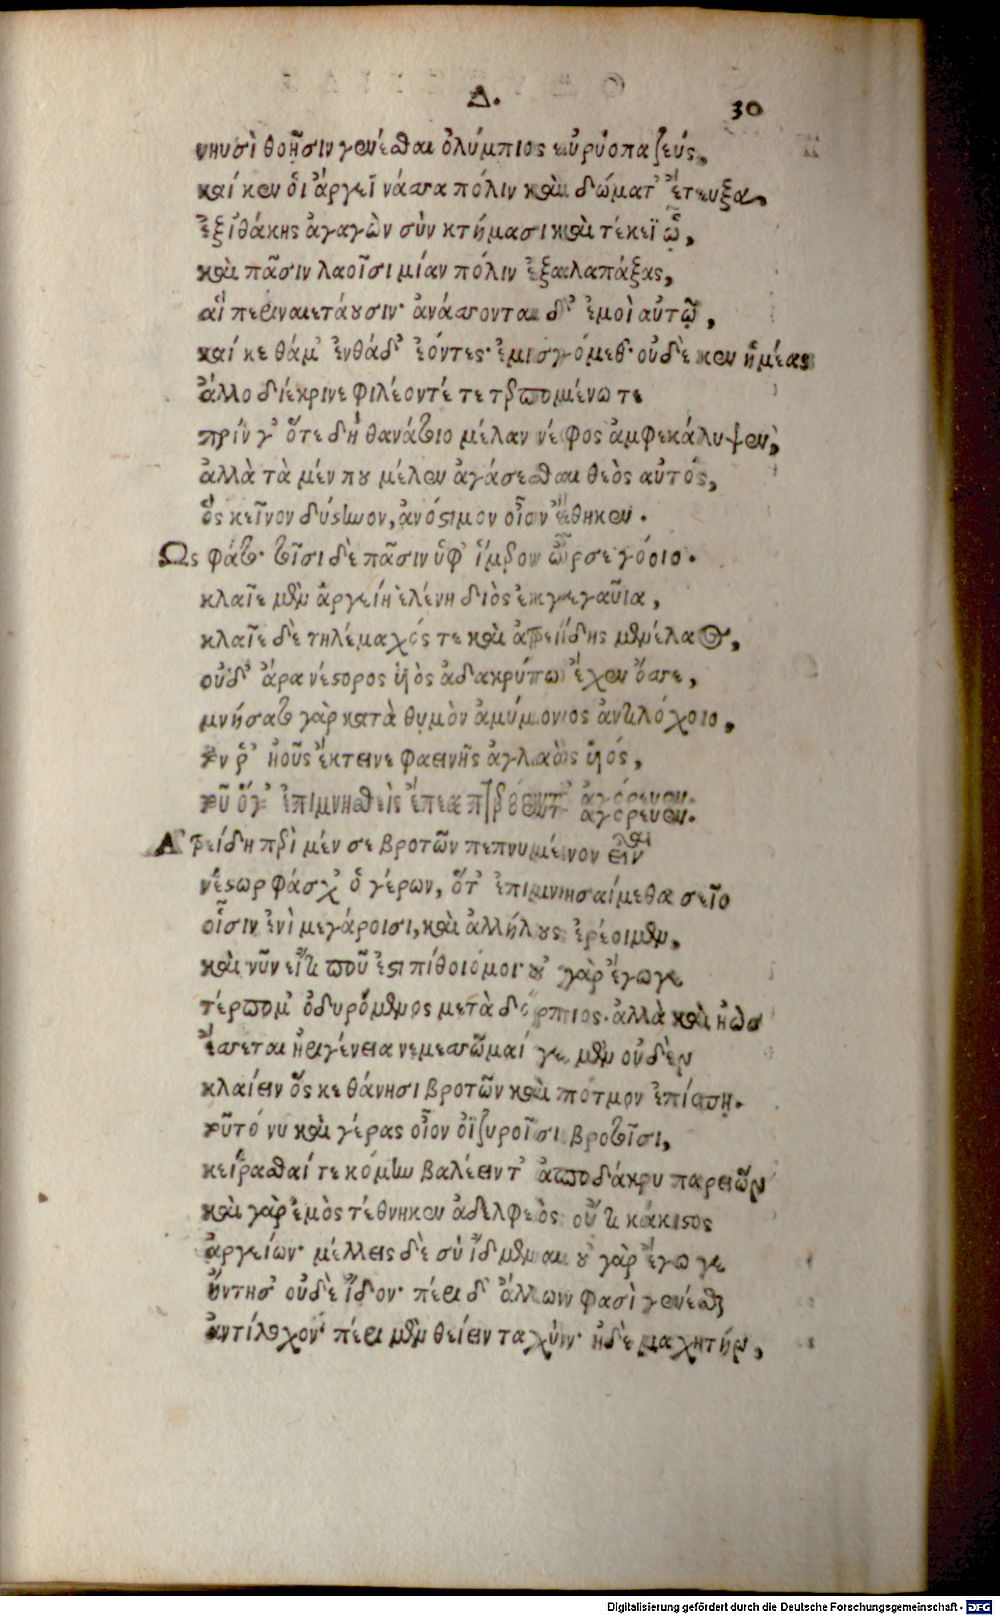 Δ.
30
νηυσὶ θοῇσιν γενέσθαι ὀλύμπιος εὐρύοπα ζεύς,
καί κεν οἱ ἄργεϊ νάσσα πόλιν καὶ δώματ' ἔτευξα,
ἐξ ἰθάκης ἀγαγὼν σὺν κτήμασι καὶ τέκεϊ ᾧ,
καὶ πᾶσιν λαοῖσι μίαν πόλιν ἐξαλαπάξας,
αἳ περιναιετάουσιν· ἀνάσσονται δ' ἐμοὶ αὐτῷ,
καί κε θάμ' ἐνθάδ' ἐόντες· ἐμισγόμεθ'· οὐδὲ κεν ἡμέας
ἄλλο διέκρινε φιλέοντέ τε τερπομένω τε
πρίν γ' ὅτε δὴ θανάτοιο μέλαν νέφος ἀμφεκάλυψεν,
ἀλλὰ τὰ μέν που μέλεν ἀγάσεσθαι θεὸς αὐτός,
ὃς κεῖνον δύστηνον, ἀνόστιμον οἶον ἔθηκεν.
Ως φάτο· τοῖσι δὲ πᾶσιν ὑφ' ἵμερον ὦρσε γόοιο.
κλαῖε μὲν ἀργείη ἑλένη διὸς ἐκγεγαῦια,
κλαῖε δὲ τηλέμαχός τε καὶ ἀτρείδης μενέλαος,
οὐδ' ἄρα νέστορος υἱὸς ἀδακρύτω ἔχεν ὄσσε,
μνήσατο γὰρ κατὰ θυμὸν ἀμύμονος ἀντιλόχοιο,
τόν ῥ' ἠοῦς ἔκτεινε φαεινῆς ἀγλαὸς υἱός,
τοῦ ὅγ' ἐπιμνησθεὶς ἔπεα πτερόεντ' ἀγόρευεν.
Ατρείδη περὶ μέν σε βροτῶν πεπνυμένον εἶναι
νέστωρ φάσχ' ὁ γέρων, ὅτ' ἐπιμνησαίμεθα σεῖο
οἷσιν ἐνὶ μεγάροισι, καὶ ἀλλήλους ἐρέοιμεν,
καὶ νῦν εἴ τι που ἐστι πίθοιό μοι· οὐ γὰρ ἔγωγε
τέρπομ' ὀδυρόμενος μεταδόρπιος· ἀλλὰ καὶ ἠὼς
ἔσσεται ἠριγένεια νεμεσσῶμαί γε μὲν οὐδὲν
κλαίειν ὅς κε θάνησι βροτῶν καὶ πότμον ἐπίσπῃ.
τοῦτό νυ καὶ γέρας οἶον ὀϊζυροῖσι βροτοῖσι,
κείρασθαί τε κόμην βαλέειν τ' ἀπὸ δάκρυ παρειῶν
καὶ γὰρ ἐμὸς τέθνηκεν ἀδελφεὸς οὔ τι κάκιστος
ἀργείων· μέλλεις δὲ σὺ ἴδμεναι οὐ γὰρ ἔγωγε
ἤντησ' οὐδὲ ἴδον· πέρι δ' ἄλλων φασὶ γενέσθαι
ἀντίλοχον· πέρι μὲν θείειν ταχὺν· ἠδὲ μαχητήν,
Digitalisierung gefördert durch die Deutsche Forschungsgemeinschaft - DFG